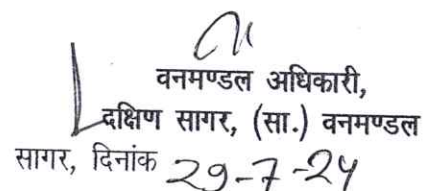 वनमण्डल अधिकारी,
दक्षिण सागर, (सा.) वनमण्डल
सागर, दिनांक 29-7-24